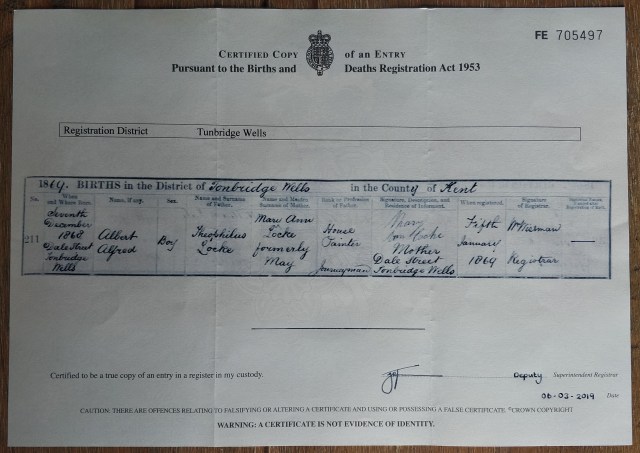 FE 705497
CERTIFIED COPY of an ENTRY
Pursuant to the Births and Deaths Registration Act 1953
Registration District Tunbridge Wells
1869. BIRTHS in the District of Tonbridge Wells in the County of Kent
No. When and Where Born. Name, if any. Sex. Name and Surname of Father. Name and Maiden Surname of Mother. Rank or Profession of Father. Signature, Description, and Residence of Informant. When registered. Signature of Registrar.
211
Seventh
December
1868
Dale Street
Tonbridge
Wells
Albert
Alfred
Boy
Theophilus
Locke
Mary Ann
Locke
formerly
May
House
Painter
Journeyman
Mary
Ann Locke
Mother
Dale Street
Tonbridge Wells
Fifth
January
1869
Registrar
Certified to be a true copy of an entry in a register in my custody.
Deputy Superintendent Registrar
06-02-2019 Date
CAUTION: THERE ARE OFFENCES RELATING TO FALSIFYING OR ALTERING A CERTIFICATE AND USING OR POSSESSING A FALSE CERTIFICATE. ©CROWN COPYRIGHT
WARNING: A CERTIFICATE IS NOT EVIDENCE OF IDENTITY.